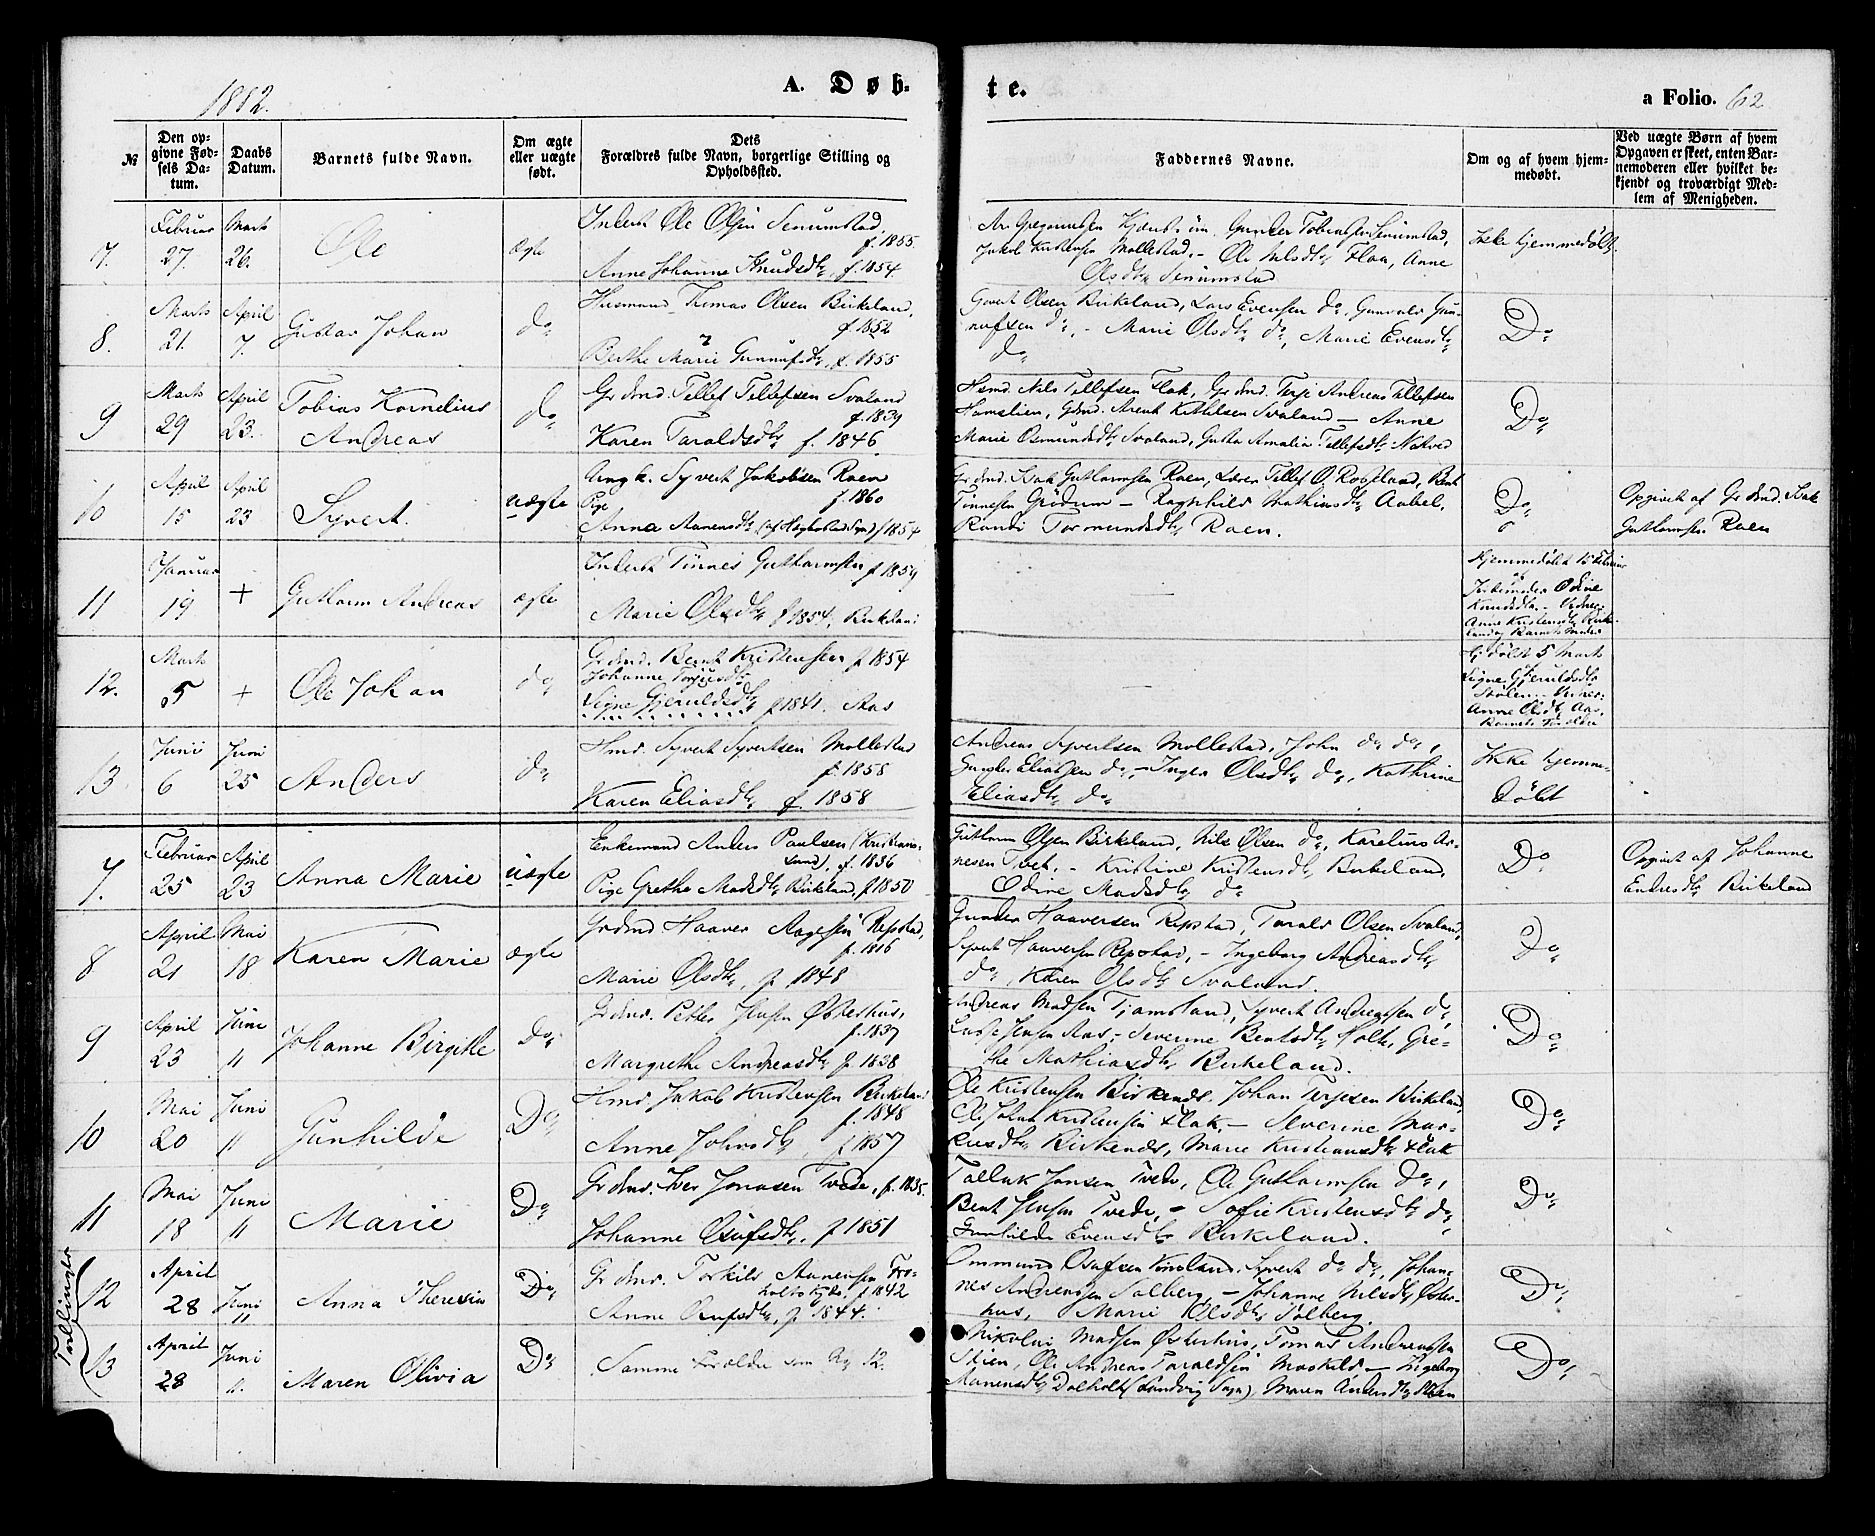 1882.
A. Døb-
te.
a Folio. 62
№
Den op-
givne Fød-
sels Da-
tum.
Daabs
Datum.
Barnets fulde Navn.
Om ægte
eller uægte
født.
Dets
Forældres fulde Navn, borgerlige Stilling og
Opholdssted.
Faddernes Navne.
Om og af hvem hjem-
medøbt.
Ved uægte Børn af hvem
Opgaven er skeet, enten Bar-
nemoderen eller hvilket be-
kjendt og troværdigt Med-
lem af Menigheden.
7.
Februar
27.
Marts
26.
Ole
Ægte
Inderst Ole Olsen Senumstad,
f. 1855
Anne Johanne Knudsdtr, f. 1854.
Gunder Tobiassen Senumstad,
Jakob Kristensen Mollestad, - Ole Nelsdtr Flaa, Anne
Olsdtr Senumstad
Ikke hjemmedøbt.
8.
Marts
21.
April
7.
Gustav Johan
do
Husmand Tomas Olsen Birkeland,
f. 1852
Berthe Marie Gunnufsdtr, f. 1855
Govert Olsen Birkeland, Lars Evensen do, Gunvald Gun-
nufsen do, - Marie Olsdtr do, Marie Evensdtr
do
Do
9
Marts
29
April
23.
Tobias Kornelius
Andreas
do
Grdmd. Tellef Tellefsen Svaland
f. 1839
Karen Taraldsdtr f. 1846.
Hsmd. Nils Tellefsen Flak, Grdmd. Terje Andreas Tellefsen
Hamslien, Gdmd. Arent Kittelsen Svaland - Anne
Marie Osmundsdtr Svaland, Gusta Amalia Tellefsdtr Natved
Do
10
April
15
April
23
Syvert.
uægte
Ungk. Syvert Jakobsen Raen
f 1860
Pige
Anna Aanensdtr (af Høgbostad Sogn) f 1854
Grdmd. Isak Guttormsen Raen, Lærer Tellef O. Rosseland, Bent
Tinnesen Grødum - Ragnhild Mathiasdtr Aabel,
Randi Tormundsdtr Raen.
Do
Opgivet af Grdmd. Isak
Guttormsen Raen
11
Januar
19
+
Guttorm Andreas
ægte
Inderst Tinnes Guttormsen f 1859
Marie Olsdtr f 1854, Birkeland
Hjemmedøbt 15 Februar
af
Jordemoder Odine
Knudsdtr. - Vidner:
Anne Kristensdtr Birke-
land og Barnets Moder
12.
Marts
5
+
Ole Johan
do
Grdmd. Bent Kristensen f 1854
Johanne Terjesdtr
Signe Gjeruldsdtr f 1841. Aas
Hjdøbt 5 Marts
af
Signe Gjeruldsdtr
Vidner:
Anne Olsdtr Aas,
Barnets Forældre
13
Juni
6
Juni
25
Anders
do
Hmd. Syvert Syvertsen Mollestad
f. 1858
Karen Eliasdtr f. 1858
Andreas Syvertsen Mollestad, John do do,
Gunder Eliassen do, - Inger Olsdtr do, Kathrine
Eliasdtr do
Ikke hjemme-
døbt
7.
Februar
25
April
23
Anna Marie
uægte
Enkemand Anders Paulsen (Kristians-
sand), f. 1836
Pige Grethe Madsdtr Birkeland, f 1850
Guttorm Olsen Birkeland, Nils Olsen do, Karelius Ar-
nesen Tvet. - Kristine Kristensdtr Birkeland
Odine Madsdtr do
Do
Opgivet af Johanne
Endresdtr Birkeland
8
April
21
Mai
18
Karen Marie
ægte
Grdmd Haaver Aagesen Repstad,
f. 1816
Marie Olsdtr, f. 1848
Gunder Haaversen Repstad, Tarald Olsen Svaland,
Syvert Haaversen Repstad, - Ingeborg Andreasdtr
do, Karen Olsdtr Svaland.
Do
9
April
23
Juni
"
Johanne Birgitte
Do
Grdmd. Petter Jensen Østerhus,
f. 1837
Margrethe Andreasdtr f. 1838
Andreas Madsen Tjamsland, Syvert Andreassen do,
Lasse Jensen Aas; Severine Bentsdtr Holte, Gre-
the Mathiasdtr Birkeland.
Do
10
Mai
20
Juni
"
Gunhilde
Do
Hmd. Jakob Kristensen Birkeland
f. 1848
Anne Johnsdtr, f. 1857
Ole Kristensen Birkenes, Johan Terjesen Birkeland,
Ole Johan Kristensen Flak, - Severine Mar-
kusdtr Birkenes, Marie Kristiansdtr Flak
Do
11
Mai
18
Juni
"
Marie
Do
Grdmd. Iver Jonasen Tvede, f. 1835.
Johanne Osufsdtr. f 1851
Tallak Jensen Tvede, Ole Guttormsen do,
Bent Jensen Tvede, - Sofie Kristensdtr do
Gunhilde Evensdtr Birkeland.
Do
Tvillinger
12
April
28
Juni
11
Anna Theresia
Do
Grdmd. Torkild Aanensen Tro-
f. 1842
Anne Osufsdtr, f. 1844.
Ommund Osufsen Kinsland, Syvert do do, Johan-
nes Andreassen Solberg, - Johanne Nilsdtr Øster-
hus, Marie Olsdtr Solberg.
Do
13
April
28
Juni
11.
Maren Olivia
Do
Samme Forældre som No 12.
Nikolai Madsen Østerhus, Tomas Andreassen
Skien, Ole Andreas Taraldsen Moskild - Ingeborg
Aanensdtr Dalholt (Landvig Sogn), Maren Andersdtr
Do